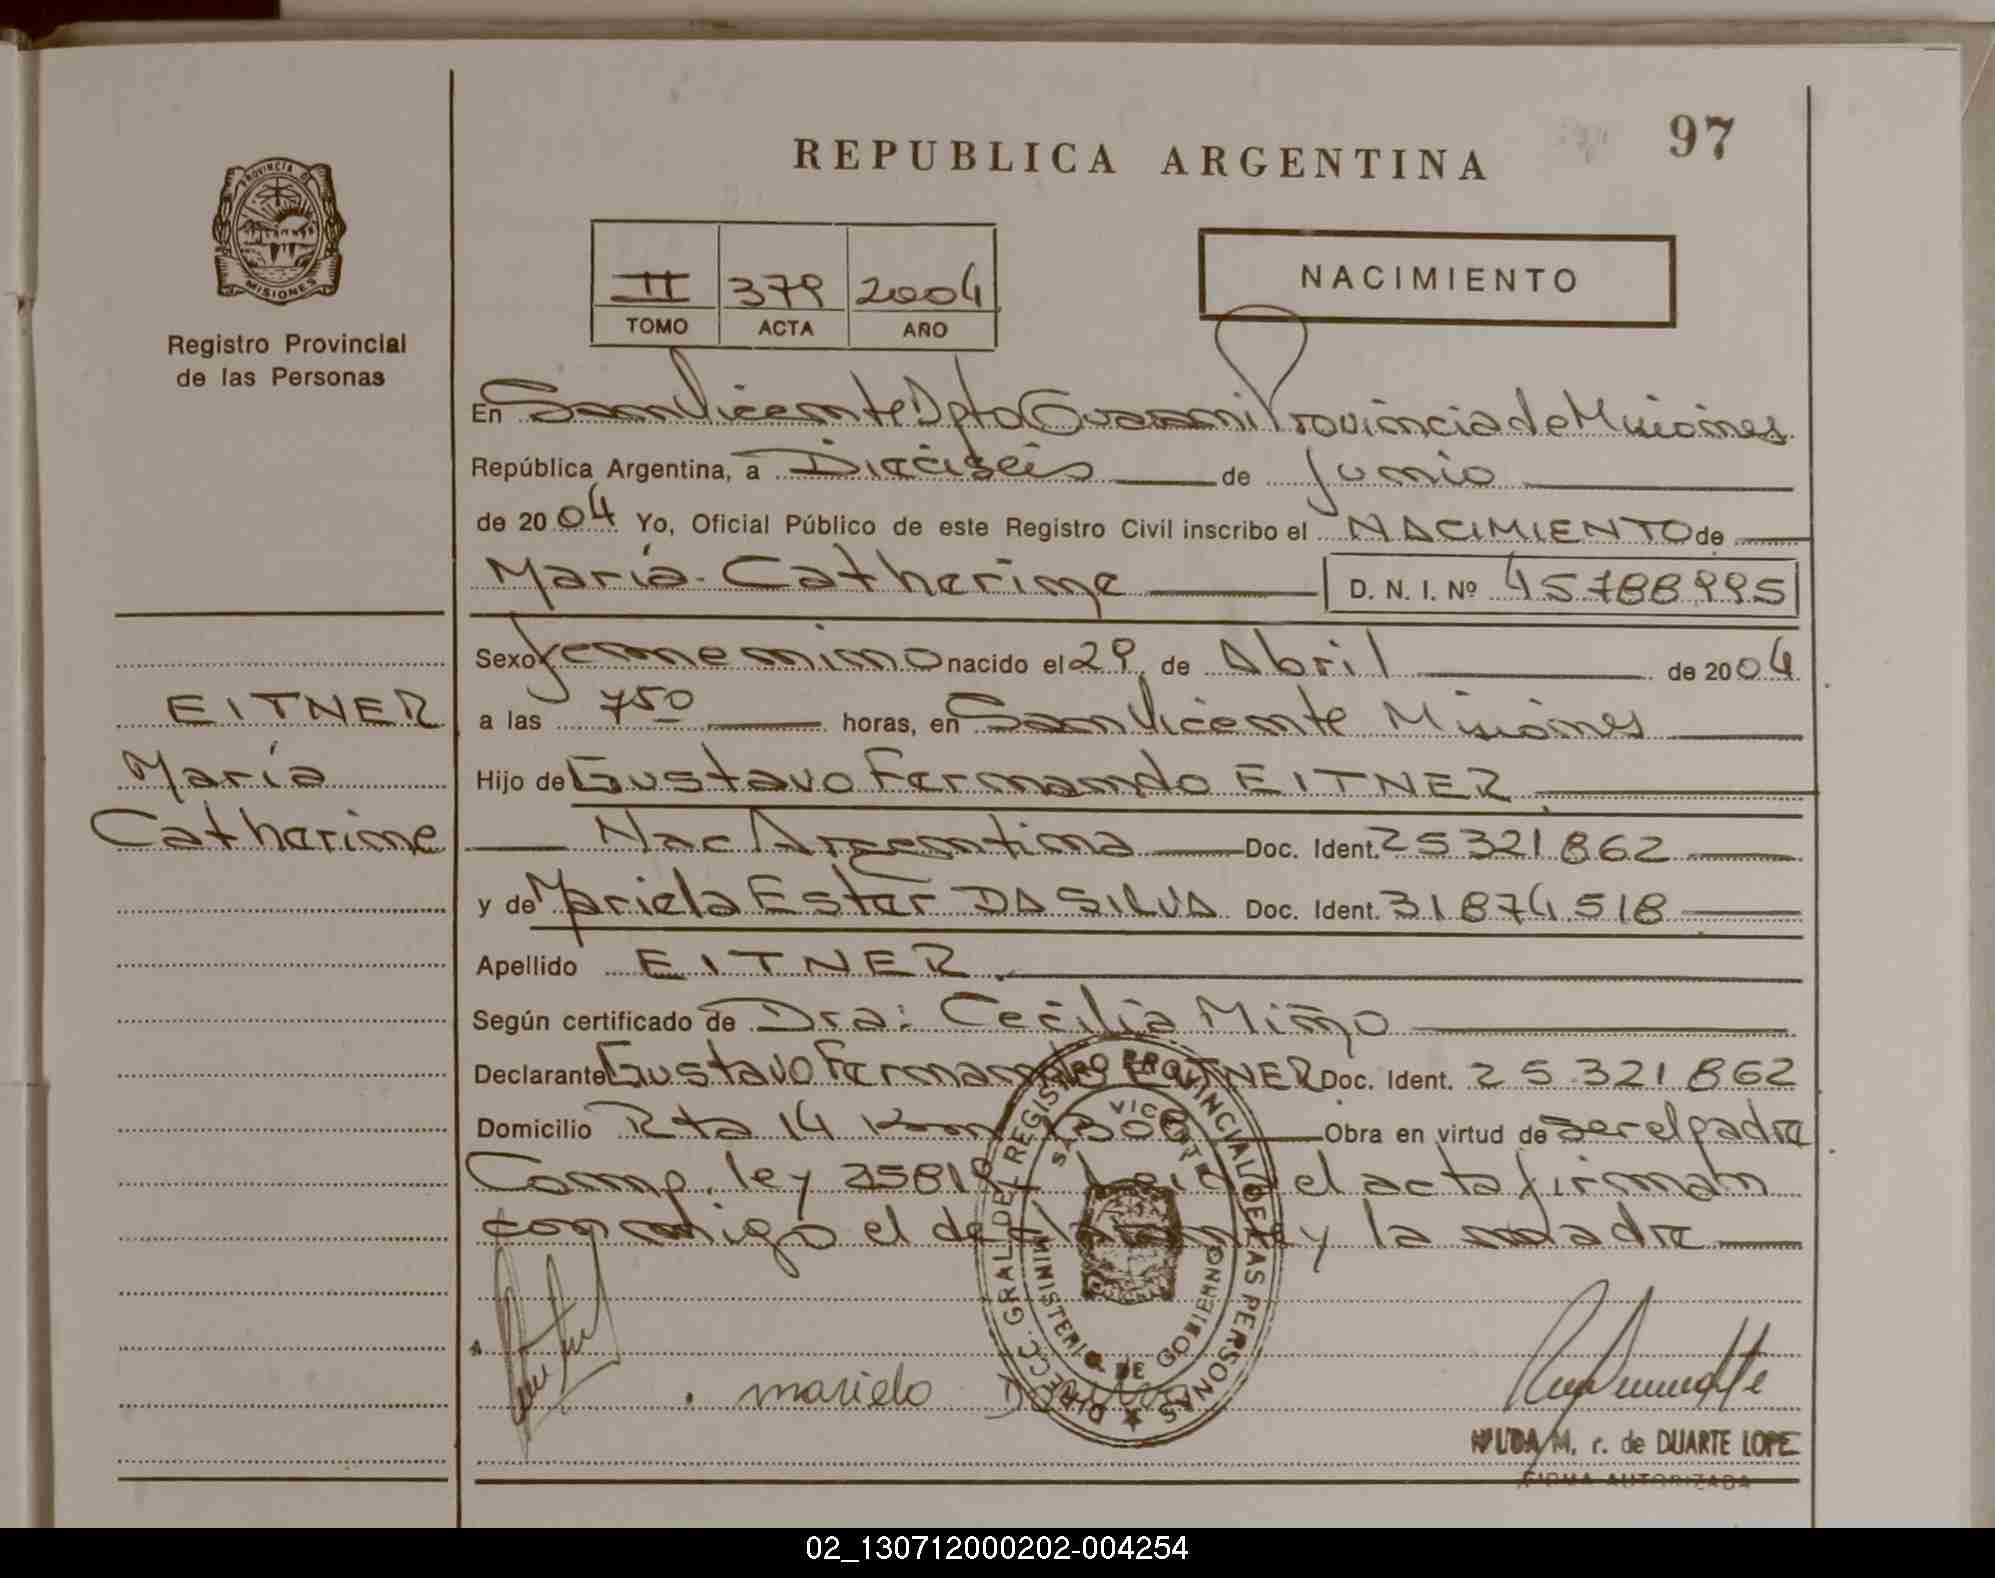 97
REPUBLICA ARGENTINA
PROVINCIA DE
MISIONES
Registro Provincial
de las Personas
II 379 2004
TOMO ACTA AÑO
NACIMIENTO
En San Vicente Dpto Guaraní Provincia de Misiones
República Argentina, a Dieciseis de Junio
de 2004 Yo, Oficial Público de este Registro Civil inscribo el NACIMIENTO de
María Catherine D. N. I. Nº 45788995
Sexo femenino nacido el 29 de Abril de 2004
EITNER
a las 750 horas, en San Vicente Misiones
María
Hijo de Gustavo Fernando EITNER
Catherine
Nac Argentina Doc. Ident. 25321862
y de Mariela Ester DA SILVA Doc. Ident. 31874518
Apellido EITNER
Según certificado de Dra: Cecilia Miño
Declarante Gustavo Fernando EITNER Doc. Ident. 25.321.862
Domicilio Rta 14 Km 1308 Obra en virtud de ser el padre
Comp. ley 25819 Leída el acta firman
conmigo el declarante y la madre
DIRECC. GRAL DEL REGISTRO PROVINCIAL DE LAS PERSONAS
SAN VICENTE
MINISTERIO DE GOBIERNO
mariela Da Silva
M. r. de DUARTE LOPE
FIRMA AUTORIZADA
02_130712000202-004254